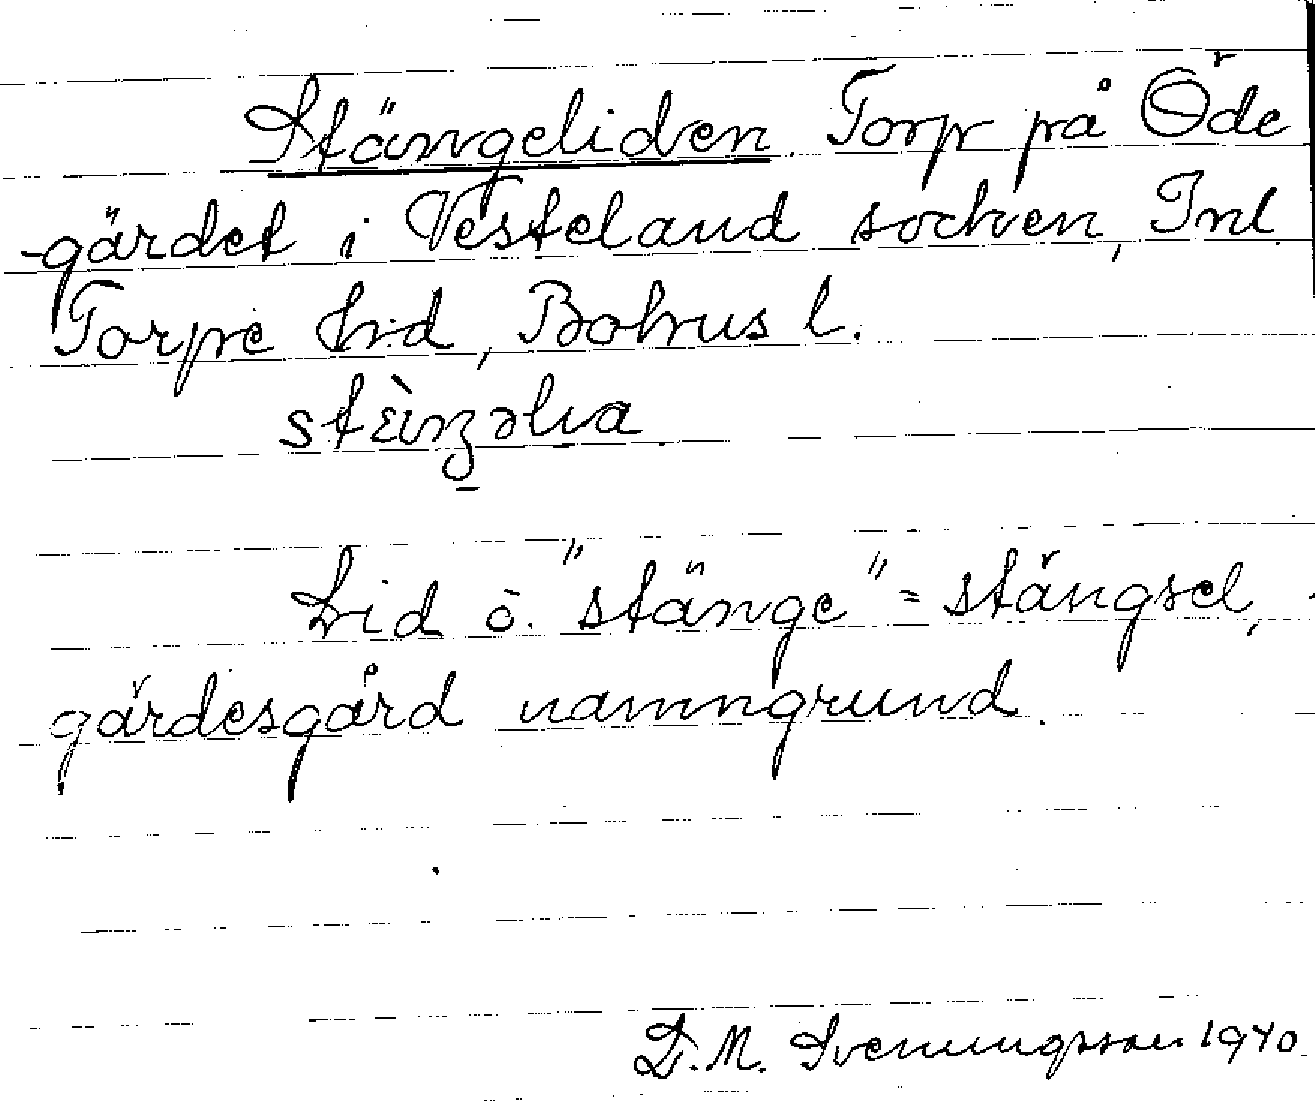 Stängeliden. Torp på Öde
-gärdet i Vesteland socken, Inl.
Torpe hrd, Bohus l.
Lid o. "stänge" = stängsel,
gärdesgård namngrund.
D. M. Svenungsson 1940